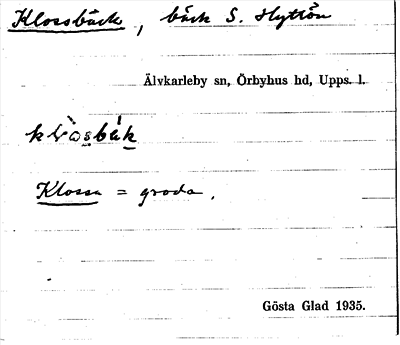 Klossbäck, bäck S. Hyttön
Älvkarleby sn, Örbyhus hd, Upps. l.
Klossa = groda.
Gösta Glad 1935.